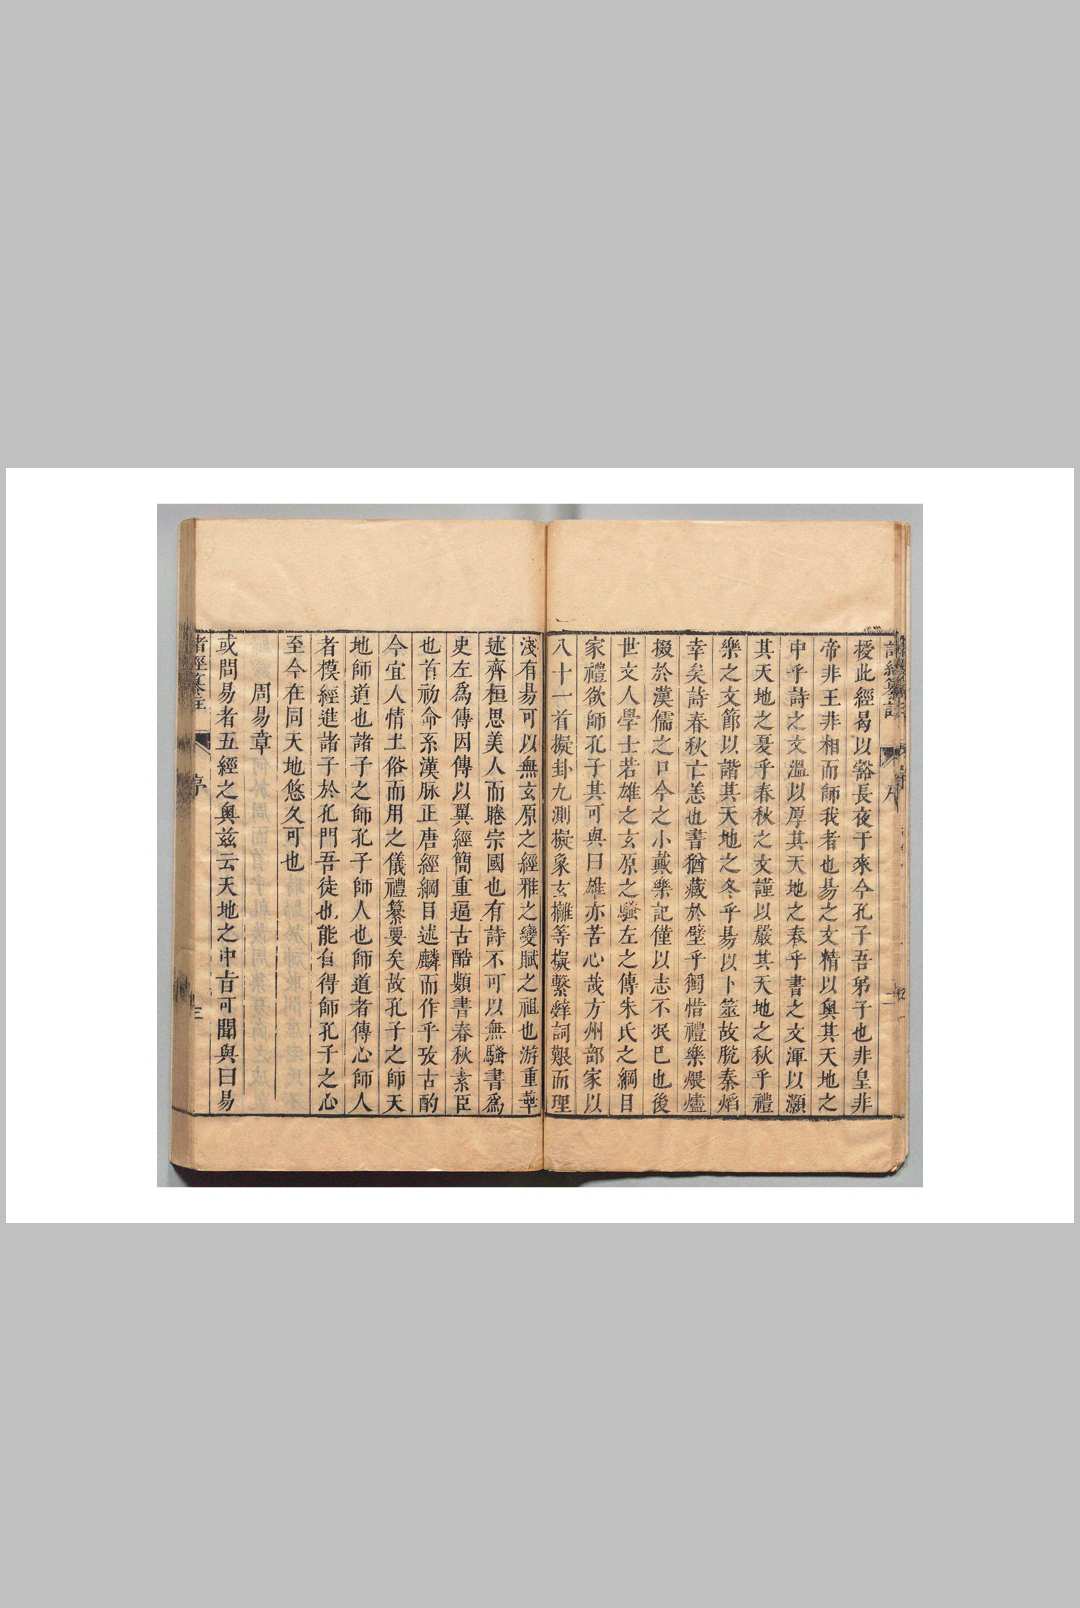 諸經纂註
楥此經曷以谿長夜于來今孔子吾弟子也非皇非
帝非王非相而師我者也易之文精以奧其天地之
中乎詩之文溫以厚其天地之春乎書之文渾以灝
其天地之夏乎春秋之文謹以嚴其天地之秋乎禮
樂之文節以諧其天地之冬乎易以卜筮故脫秦焰
幸矣詩春秋亡恙也書猶藏於壁乎獨惜禮樂煨燼
掇於漢儒之口今之小戴樂記僅以志不泯已也後
世文人學士若雄之玄原之騷左之傳朱氏之綱目
家禮欲師孔子其可與曰雄亦苦心哉方州部家以
八十一首擬卦九測擬彖玄攡等擬繫辤詞艱而理
淺有易可以無玄原之經雅之變賦之祖也游重華
述齊桓思美人而睠宗國也有詩不可以無騷書為
史左為傳因傳以翼經簡重逼古酷類書春秋素臣
也首初命系漢脉正唐經綱目述麟而作乎攷古酌
今宜人情土俗而用之儀禮纂要矣故孔子之師天
地師道也諸子之師孔子師人也師道者傳心師人
者模經進諸子於孔門吾徒也能自得師孔子之心
至今在同天地悠久可也
周易章
或問易者五經之奧茲云天地之中旨可聞與曰易
者經纂註
序
三